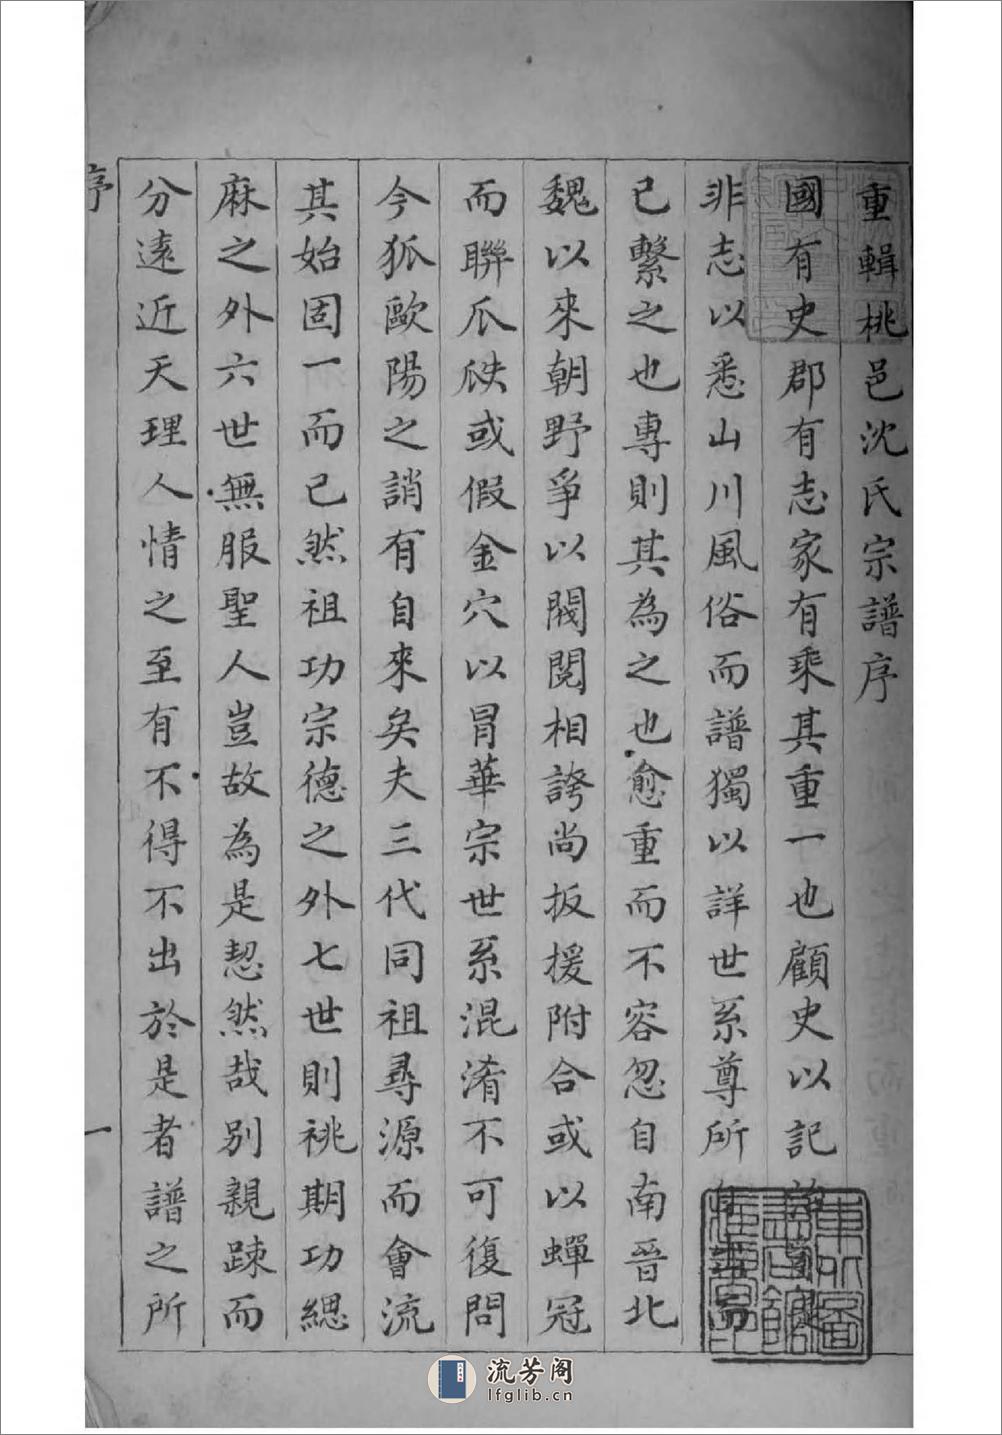 重輯桃邑沈氏宗譜序
國有史郡有志家有乘其重一也顧史以記
非志以悉山川風俗而譜獨以詳世系尊所
已繫之也專則其為之也愈重而不容忽自南晉北
魏以來朝野爭以閥閱相誇尚扳援附合或以蟬冠
而聯瓜瓞或假金穴以冒華宗世系混淆不可復問
今狐歐陽之誚有自來矣夫三代同祖尋源而會流
其始固一而已然祖功宗德之外七世則祧期功緦
麻之外六世無服聖人豈故為是恝然哉別親踈而
分遠近天理人情之至有不得不出於是者譜之所
序
一
流芳阁
lfglib.cn